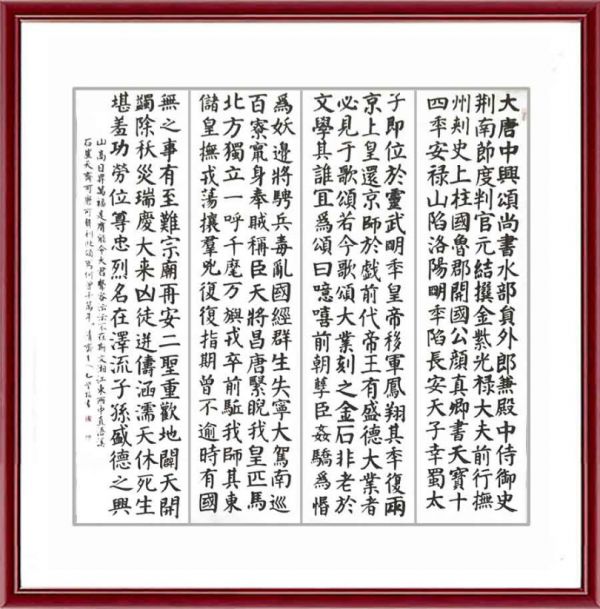 大唐中興頌尚書水部員外郎兼殿中侍御史
荆南節度判官元結撰金紫光禄大夫前行撫
州刺史上柱國魯郡開國公顏真卿書天寶十
四秊安禄山陷洛陽明秊陷長安天子幸蜀太
子即位於靈武明秊皇帝移軍鳳翔其秊復兩
京上皇還京師於戲前代帝王有盛德大業者
必見于歌頌若今歌頌大業刻之金石非老於
文學其誰宜為頌曰噫嘻前朝孽臣姦驕為惽
為妖邊將騁兵毒亂國經群生失寧大駕南巡
百寮竄身奉賊稱臣天將昌唐緊睨我皇匹馬
北方獨立一呼千麾万旟戎卒前駈我師其東
儲皇撫戎蕩攘羣兇復復指期曾不逾時有國
無之事有至難宗廟再安二聖重歡地闢天開
蠲除祅災瑞慶大来凶徒逆儔涵濡天休死生
堪羞功勞位尊忠烈名在澤流子孫盛德之興
山高日昇萬福是膺能令大君聲容沄沄不在斯文湘江東西中直浯溪
石崖天齊可磨可鐫刊此頌焉何千萬年